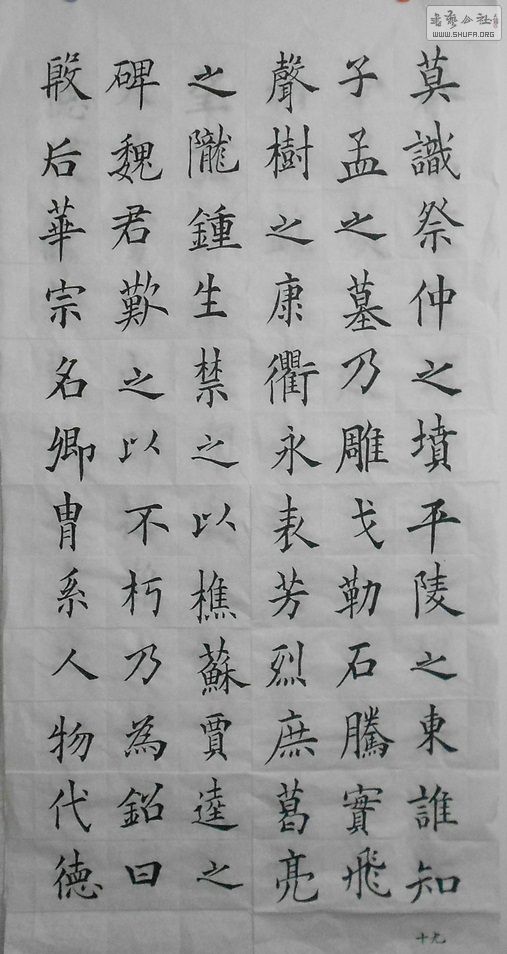 莫識祭仲之墳平陵之東誰知
子孟之墓乃雕戈勒石騰實飛
聲樹之康衢永表芳烈庶葛亮
之隴鍾生禁之以樵蘇賈逵之
碑魏君歎之以不朽乃為銘曰
殷后華宗名卿胄系人物代德
十九
書藝公社
WWW.SHUFA.ORG